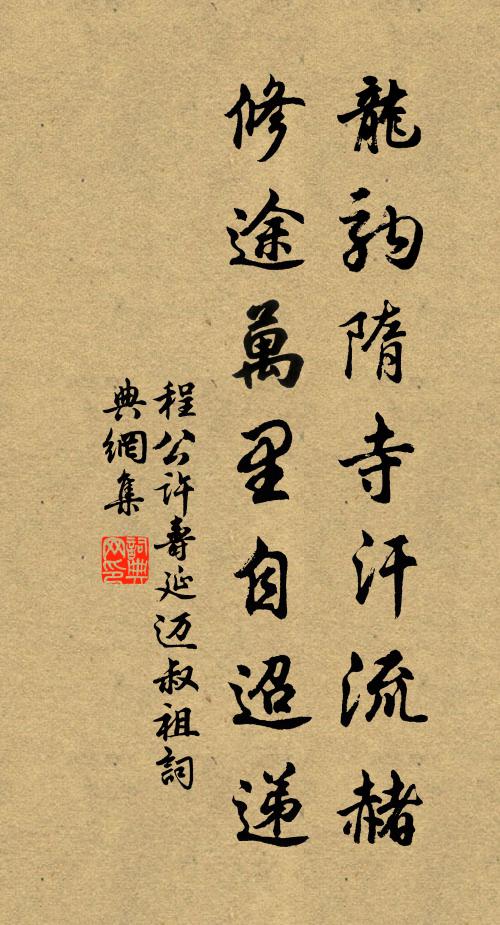 龍駒隋寺汗流赭
修途萬里自迢遞
程公許壽延迈叔祖詞
典網集
詞典
网印